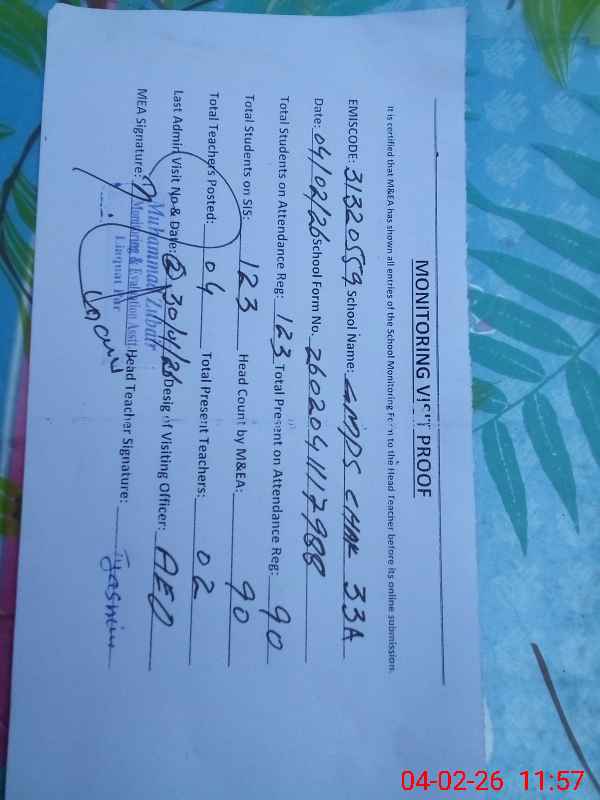 MONITORING VISIT PROOF
It is certified that M&EA has shown all entries of the School Monitoring Form to the Head Teacher before its online submission.
EMISCODE: 31320559 School Name: GMPS CHAK 33A
Date: 04/02/26 School Form No. 26020411117988
Total Students on Attendance Reg: 123 Total Present on Attendance Reg: 90
Total Students on SIS: 123 Head Count by M&EA: 90
Total Teachers Posted: 04 Total Present Teachers: 02
Last Admin Visit No & Date: Desig of Visiting Officer: AEO
MEA Signature: Head Teacher Signature: Yasmin
Muhammad Zubair
Monitoring & Evaluation Asstt
Liaquat Pur
04-02-26 11:57